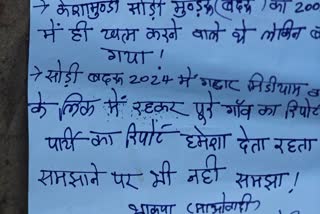 केशामुण्डी सोड़ी मुण्ड्रा (बदरू) का 200
में ही खत्म करने वाले थे लेकिन ब
गया !
→ सोड़ी बदरू 2024 में गद्दार मिडीयाम ब
के लिंक में रहकर पूरे गाँव का रिपोर्ट
पार्टी का रिपोर्ट हमेशा देता रहता
समझाने पर भी नही समझा !
भाकपा (माओवादी)